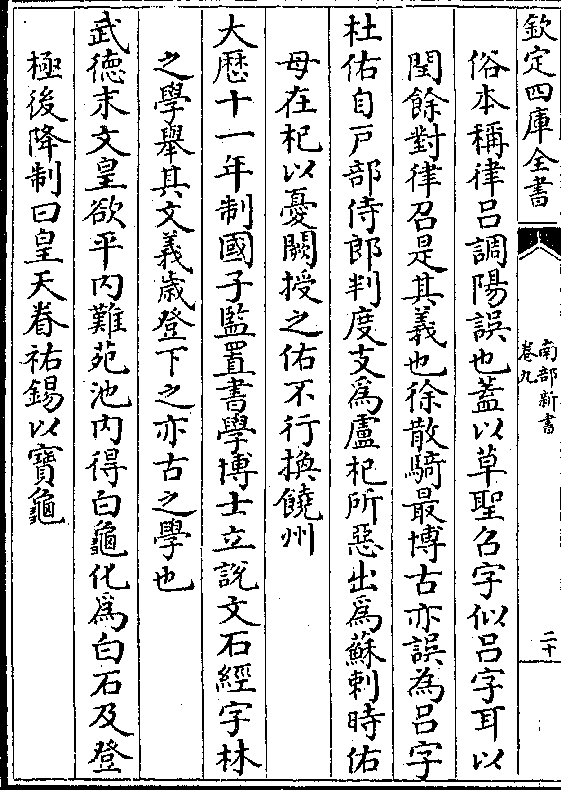 欽定四庫全書
南部新書
卷九
二十
俗本稱律吕調陽誤也蓋以草聖召字似吕字耳以
閏餘對律召是其義也徐散騎最博古亦誤為吕字
杜佑自戸部侍郎判度支為盧杞所惡出為蘇刺時佑
母在杞以憂闕授之佑不行換饒州
大厯十一年制國子監置書學博士立說文石經字林
之學舉其文義歲登下之亦古之學也
武德末文皇欲平内難苑池内得白龜化為白石及登
極後降制曰皇天眷祐錫以寶龜